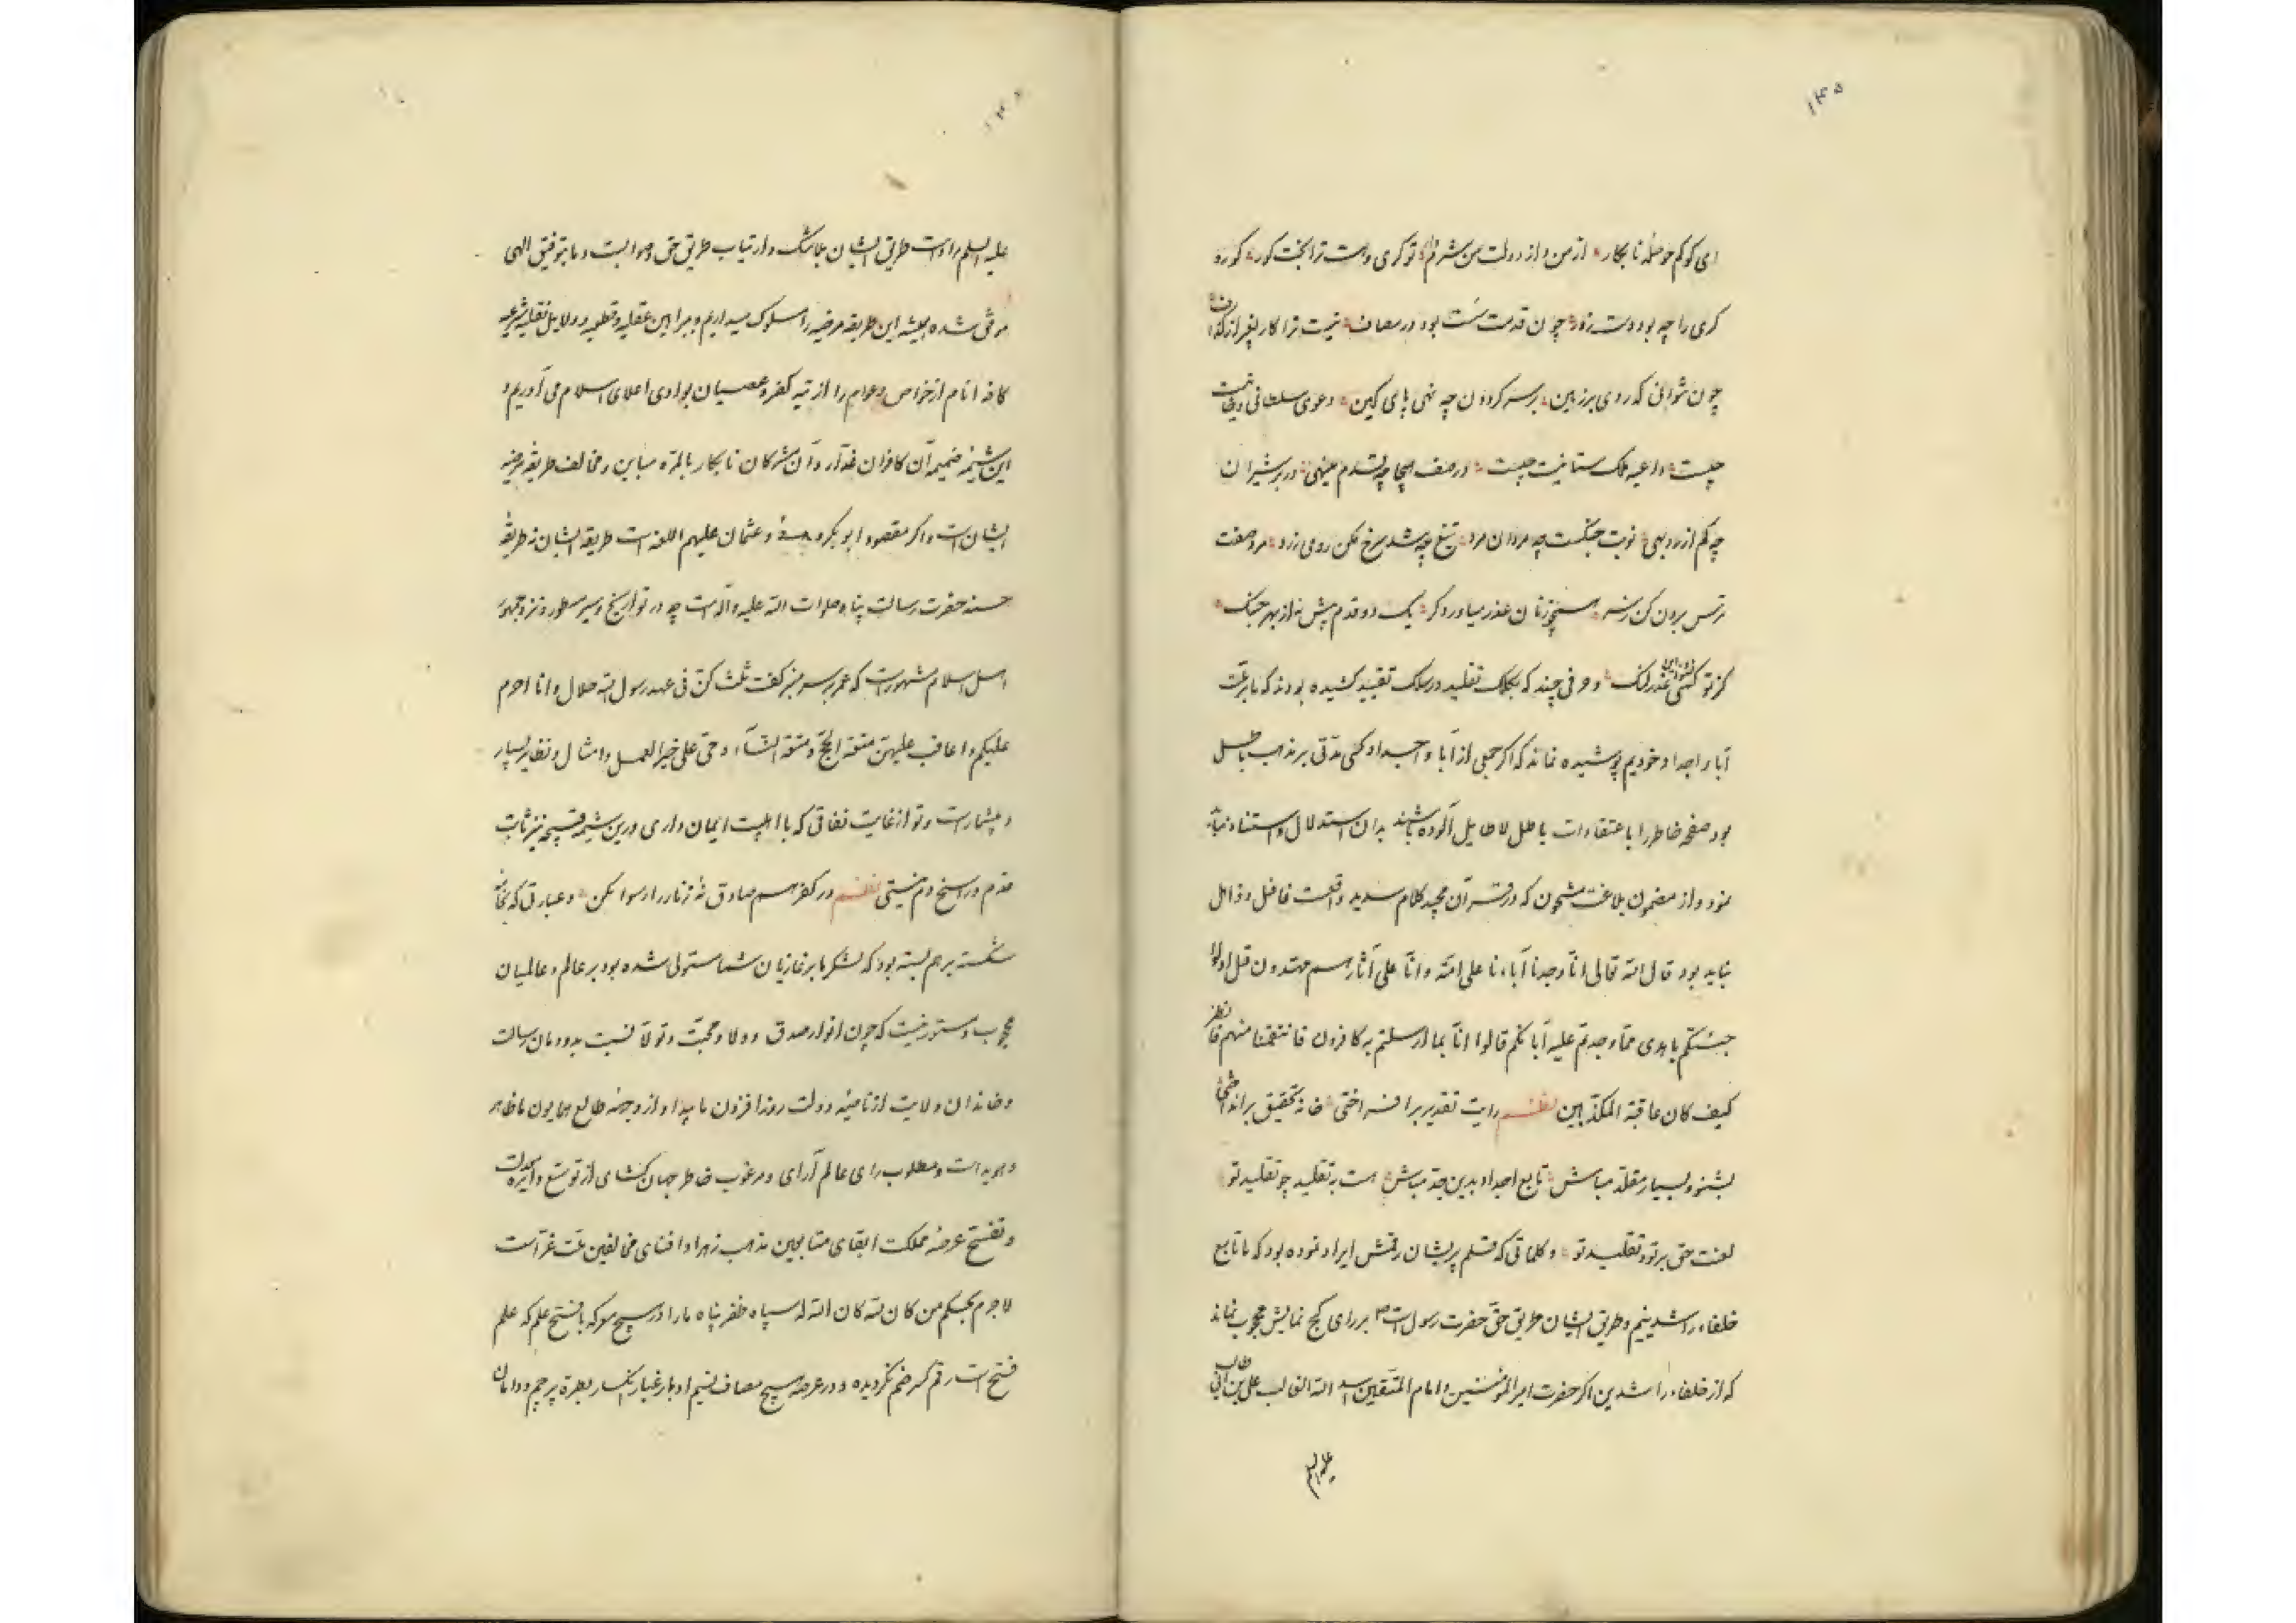 ۱۴۵
ای کو کم حوصله نابکار از من و از دولت من شرم دار تو کری و هست ترا بخت کور کور و
کری را چه بود دست زور چون قدمت سست بود در مصاف نیست ترا کار بغیر از گزاف
چون نتوانی که روی بر زمین بر سر گردون چه نهی پای کین دعوی سلطانی
چیست داعیه ملک ستانیت چیست در صف هیجا چه قدم مینهی در بر شیران
چه کم از روبهی نوبت جنگست چه مردان مرد تیغ چه شد سرخ نکن روی زرد مرد صفت
ترس برون کن ز سر همچو زنان عذر میاور دگر یک دو قدم پیش نه از بهر جنگ
کز تو کسی عذر لنک و حرفی چند که بکلک تقلید در سلک تقیید کشیده بودند که ما بر ملت
آبا و اجداد خودیم پوشیده نماند که اگر جمعی از آبا و اجداد کسی مدتی بر مذهب باطل
بود صفحه خاطر را با عتقادات باطل لاطایل آلوده باشند بدان استدلال و استناد نباید
نمود و از مضمون بلاغت مشحون که در قرآن مجید کلام سدید واقعست غافل و ذاهل
نباید بود قال الله تعالی انا وجدنا آباءنا علی امة و انا علی آثارهم مهتدون قل اولو
جئتکم باهدی مما وجدتم علیه آباءکم قالوا انا بما ارسلتم به کافرون فانتقمنا منهم فانظر
کیف کان عاقبة المکذبین نظم رایت تقدیر بر افراختی خانه تحقیق بر انداختی
بشنو و بسیار مقلد مباش تابع اجداد بدین جد مباش هست به تقلید چو تقلید تو
لعنت حق بر تو و تقلید تو و کلماتی که قلم پریشان رقمش ایراد نموده بود که ما تابع
خلفاء راشدینیم و طریق ایشان طریق حق حضرت رسول است بر رای کج نمایش محجوب نماند
که از خلفاء راشدین اگر حضرت امیرالمؤمنین و امام المتقین اسد الله الغالب علی بن ابی طالب
علیه السلم
علیه السلم مراد است طریق ایشان بلا شک و ارتیاب طریق حق و صوابست و ما بتوفیق الهی
موفق شده همیشه این طریقه مرضیه را مسلوک میداریم و ببراهین عقلیه قطعیه و دلایل نقلیه شرعیه
کافه انام از خواص و عوام را از تیه کفر و عصیان بوادی اعلای اسلام می آوریم و
این شیمه ضمیمه آن کافران غدار و آن مشرکان نابکار بالمره مباین و مخالف طریقه مرضیه
ایشان است و اگر مقصود ابوبکر و عمر و عثمان علیهم اللعنه است طریقه ایشان نه طریقه
حسنه حضرت رسالت پناه صلوات الله علیه و آله است چه در تواریخ و سیر مسطور و نزد جمهور
اهل اسلام مشهور است که عمر بر سر منبر گفت ثلث کن فی عهد رسول الله حلال و انا احرم
علیکم و اعاقب علیهن متعة الحج و متعة النساء و حی علی خیر العمل و امثال و نظایر بسیار
و بیشمار است و تو از غایت نفاقی که با اهلبیت ایمان داری درین شیمه قبیحه نیز ثابت
قدم و راسخ دم نیستی نظم در کفر هم صادق نۀ زنار را رسوا مکن و عبارتی که بخامه
شکسته بر هم بسته بود که لشکر ما بر غازیان شما مستولی شده بود بر عالم و عالمیان
محجوب و مستور نیست که چون انوار صدق و ولا و محبت و تولا نسبت بدودمان رسالت
و خاندان ولایت از ناصیه دولت روز افزون ما پیدا و از وجهه طالع همایون ما ظاهر
و هویداست و مطلوب رای عالم آرای و مرغوب خاطر جهان گشای از توسع دایره
و تفسح عرصه مملکت ابقای متابعین مذهب زهرا و افنای مخالفین ملت غراست
لاجرم بحکم من کان لله کان الله له سپاه ظفر پناه ما را در هیچ معرکه با فتح علم که علم
فتح است رقم کسر ضم نگردیده و در عرصه هیچ مصاف نسیم ادبار غبار انکسار بطره پرچم و دامان